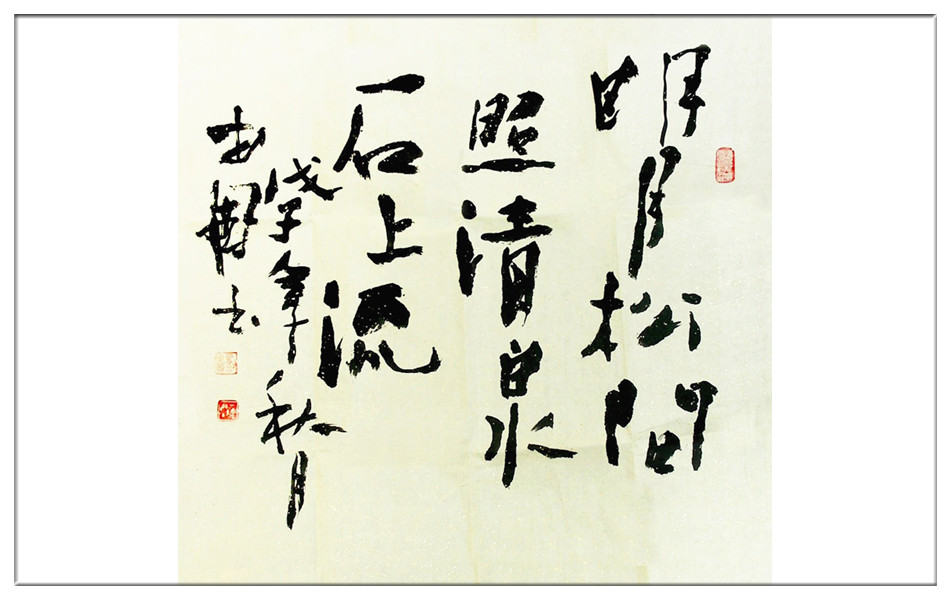 明月松间
照清泉
石上流
戊子年秋月
书